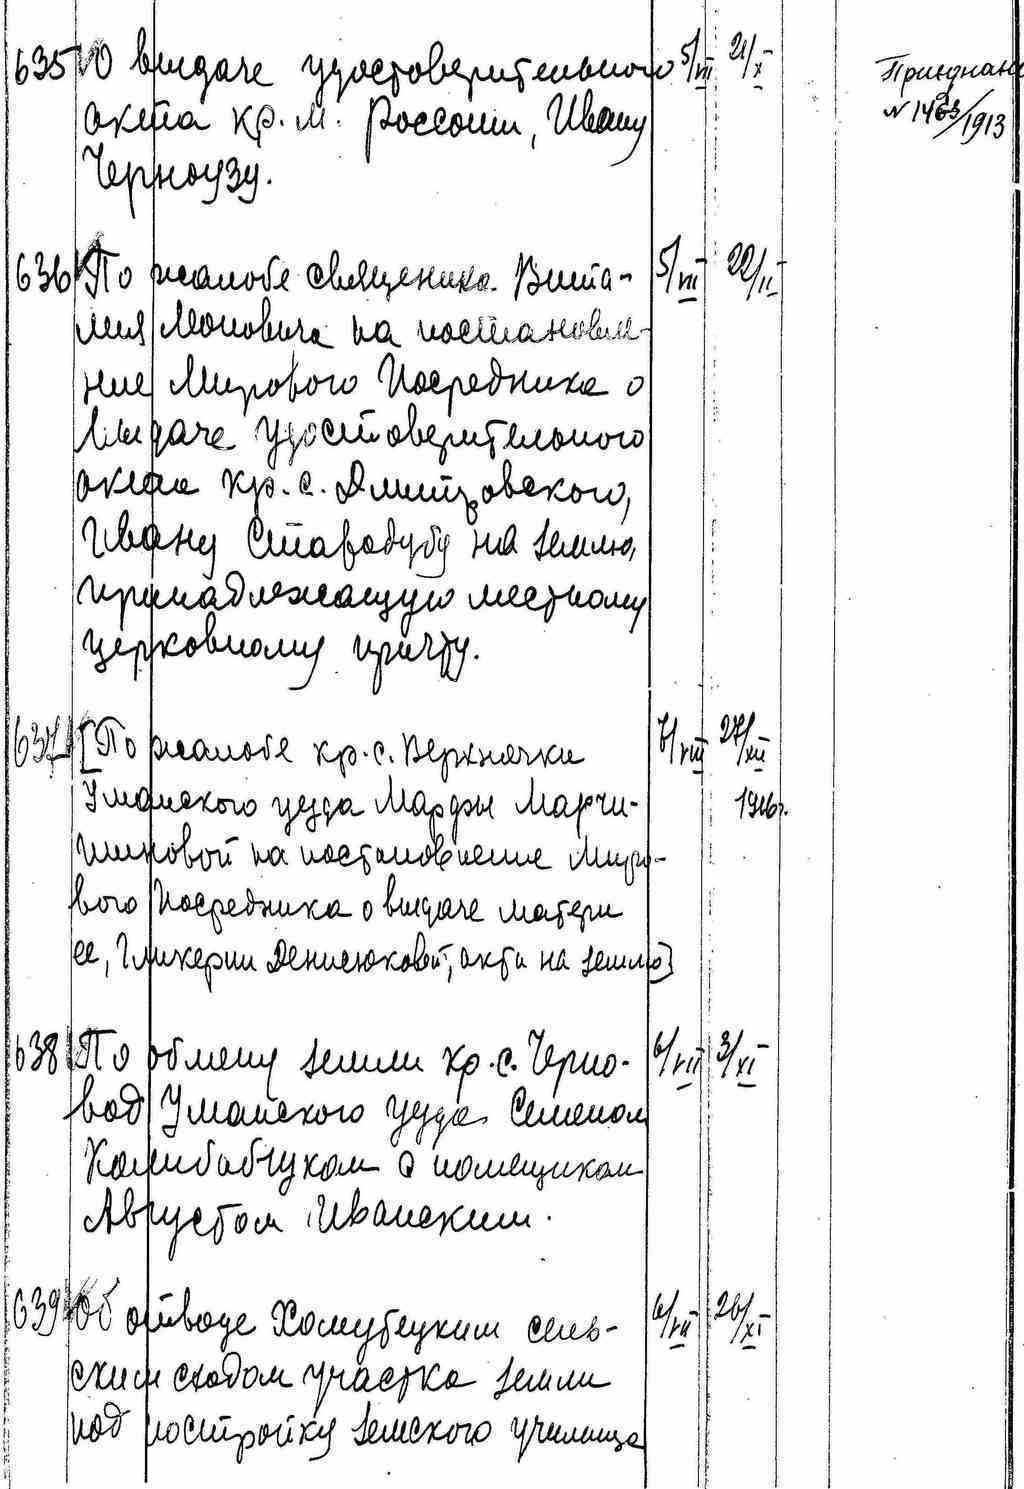 635 О выдаче удостоверительного 5/VII 21/X Присоединено
акта кр. м. Россоши, Ивану № 1463/1913
Черноузу.
636 По жалобе священника Вита- 5/VII 22/II
лия Моновича на постановле-
ние Мирового Посредника о
выдаче удостоверительного
акта кр. с. Дмитровского,
Ивану Стародубу на землю,
принадлежащую местному
церковному причту.
637 [По жалобе кр. с. Верхнячки 7/VIII 27/XII
Уманского уезда Марфы Марчи- 1916 г.
шиновой на постановление Миро-
вого Посредника о выдаче матери
ее, Гликерии Денисюковой, акта на землю]
638 По обмену земли кр. с. Черно- 6/VII 3/XI
вод Уманского уезда Семеном
с помещиком
Августом Иванским.
639 Об отводе Хомутецким сель- 6/VII 26/XI
ским сходом участка земли
под постройку земского училища